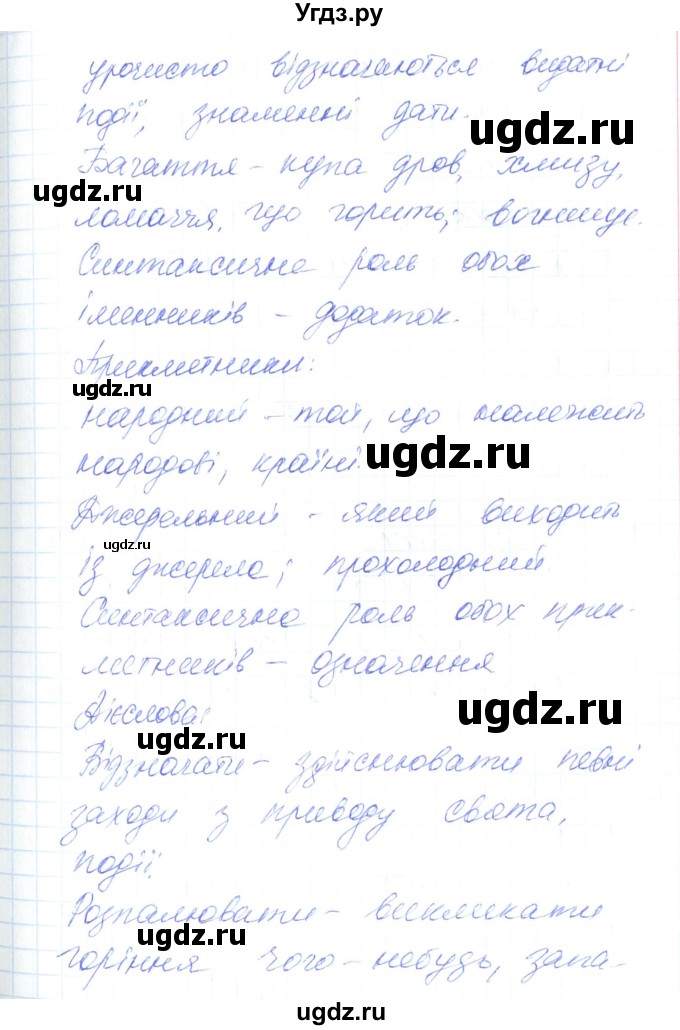 Угдз.ру
урочисто відзначаються видатні
події, знаменні дати.
ugdz.ru
Багаття – купа дров, хмизу,
ugdz.ru
ломаччя, що горить; вогнище.
Синтаксична роль обох
іменників – додаток.
Прикметники:
ugdz.ru
народний – той, що належить
народові, країні.
ugdz.ru
Джерельний – який виходить
ugdz.ru
із джерела; прохолодний
Синтаксична роль обох прик-
метників – означення
ugdz.ru
Дієслова:
ugdz.ru
Відзначати – здійснювати певні
заходи з приводу свята,
події.
Розпалювати – викликати
ugdz.ru
горіння чого-небудь, запа-
ugdz.ru